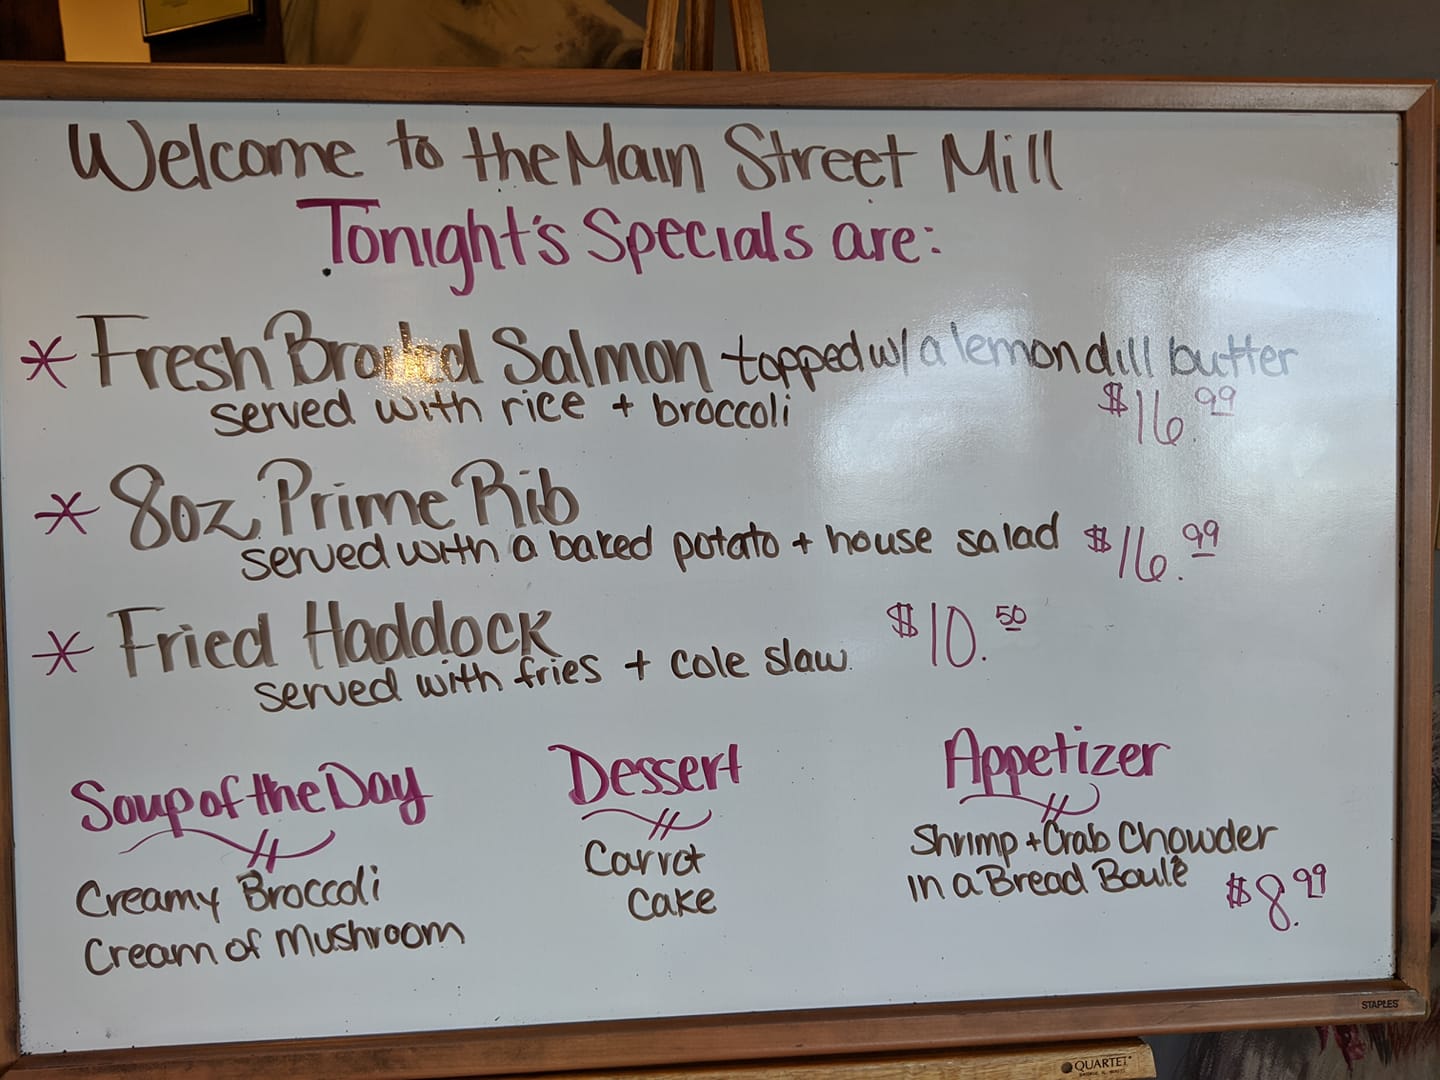 Welcome to the Main Street Mill
Tonight's Specials are:
* Fresh Broiled Salmon topped w/ a lemon dill butter
served with rice + broccoli $16.99
* 8oz. Prime Rib
served with a baked potato + house salad $16.99
* Fried Haddock $10.50
served with fries + cole slaw.
Soup of the Day
Creamy Broccoli
Cream of Mushroom
Dessert
Carrot
Cake
Appetizer
Shrimp + Crab Chowder
in a Bread Boule
$8.99
STAPLES
QUARTET